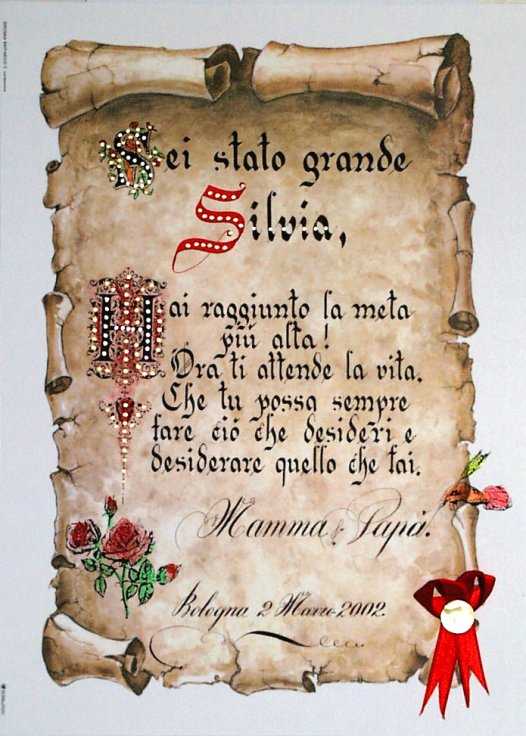 Sei stato grande
Silvia,
Hai raggiunto la meta
più alta!
Ora ti attende la vita.
Che tu possa sempre
fare ció che desideri e
desiderare quello che fai.
Mamma e Papá.
Bologna 2 Marzo 2002.